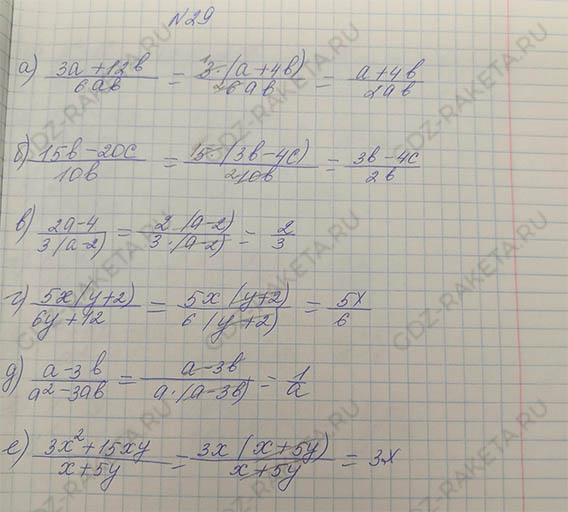 №29
а) (3a+12b)/(6ab) = (3·(a+4b))/(6ab) = (a+4b)/(2ab)
б) (15b-20c)/(10b) = (5·(3b-4c))/(10b) = (3b-4c)/(2b)
в) (2a-4)/(3(a-2)) = (2·(a-2))/(3·(a-2)) = 2/3
г) (5x(y+2))/(6y+12) = (5x(y+2))/(6(y+2)) = 5x/6
д) (a-3b)/(a²-3ab) = (a-3b)/(a·(a-3b)) = 1/a
е) (3x²+15xy)/(x+5y) = (3x(x+5y))/(x+5y) = 3x
GDZ-RAKETA.RU